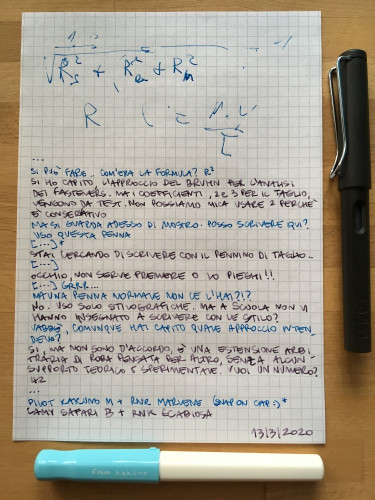 1
√R_s² + R_a² + R_m²
R
...
SI PUÒ FARE.. COM'ERA LA FORMULA? R²
SI HO CAPITO, L'APPROCCIO DEL BRUHN PER L'ANALISI
DEI FASTENERS. MA I COEFFICIENTI, 2 E 3 PER IL TAGLIO,
VENGONO DA TEST. NON POSSIAMO MICA USARE 2 PERCHÈ
È CONSERVATIVO
MA SI, GUARDA ADESSO TI MOSTRO. POSSO SCRIVERE QUI?
USO QUESTA PENNA
[...]*
STAI CERCANDO DI SCRIVERE CON IL PENNINO DI TAGLIO..
[...]
OCCHIO, NON SERVE PREMERE O LO PIEGHI!!
[...] GRRR...
MA UNA PENNA NORMALE NON CE L'HAI?!?
NO. USO SOLO STILOGRAFICHE. MA A SCUOLA NON VI
HANNO INSEGNATO A SCRIVERE CON LE STILO?
VABBÈ, COMUNQUE HAI CAPITO QUALE APPROCCIO INTEN-
DEVO?
SI, MA NON SONO D'ACCORDO, È UNA ESTENSIONE ARBI-
TRARIA DI ROBA PENSATA PER ALTRO, SENZA ALCUN
SUPPORTO TEORICO O SPERIMENTALE. VUOI UN NUMERO?
42
...
PILOT KAKUNO M + R&K MARLENE (SNAP ON CAP :)*
LAMY SAFARI B + R&K SCABIOSA
13/3/2020
kakuno